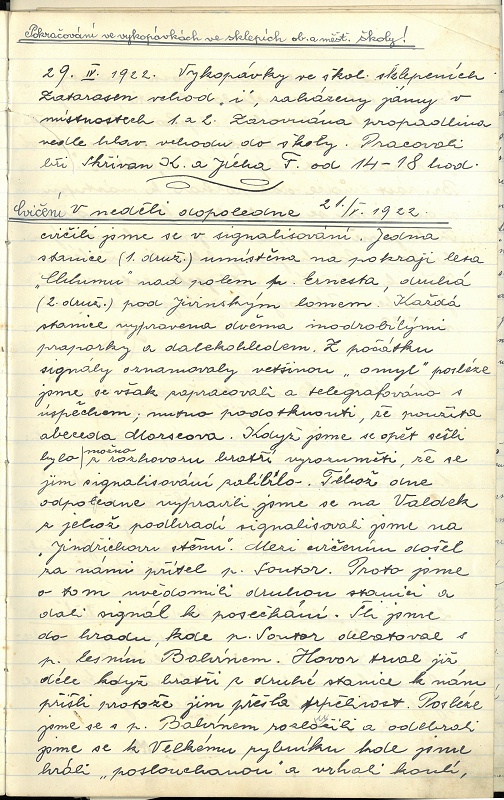 Pokračování ve vykopávkách ve sklepích ob. a měšť. školy!
29. IV. 1922. Vykopávky ve škol. sklepeních
Zatarasen vchod "i", zaházeny jámy v
místnostech 1. a 2. Zarovnána propadlina
vedle hlav. vchodu do školy. Pracovali
bři Skřivan K. a Jícha F. od 14–18 hod.
Cvičení V neděli dopoledne 21./V. 1922.
cvičili jsme se v signalisování. Jedna
stanice (1. druž.) umístěna na pokraji lesa
"Chlumu" nad polem p. Ernesta, druhá
(2. druž.) pod Jivinským lomem. Každá
stanice vypravena dvěma modrobílými
praporky a dalekohledem. Z počátku
signály oznamovaly většinou "omyl" posléze
jsme se však zapracovali a telegrafováno s
úspěchem; nutno podotknouti, že použita
abeceda Morseova. Když jsme se opět sešli
bylo možno z rozhovoru bratří vyrozuměti, že se
jim signalisování zalíbilo. Téhož dne
odpoledne vypravili jsme se na Valdek
z jehož podhradí signalisovali jsme na
"Jindřichovu stěnu". Mezi cvičením došel
za námi přítel p. Soutor. Proto jsme
o tom uvědomili druhou stanici a
dali signál k posečkání. Šli jsme
do hradu kde p. Soutor debatoval s
p. lesním Balvínem. Hovor trval již
déle když bratři z druhé stanice k nám
přišli protože jim přešla trpělivost. Posléze
jsme se s p. Balvínem rozloučili a odebrali
jsme se k Velkému rybníku kde jsme
hráli "poslouchanou" a vrhali koulí,